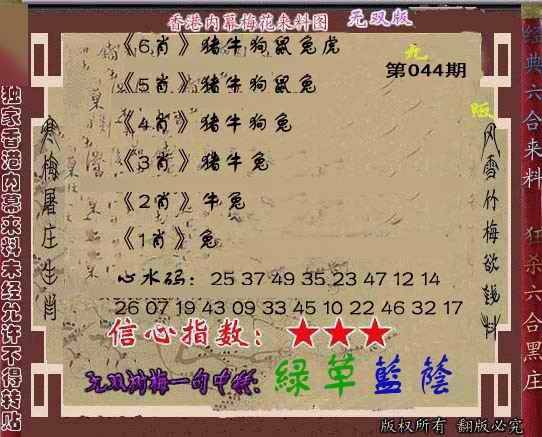 香港内幕梅花来料图 无双版
《6肖》猪牛狗鼠兔虎
九
第044期
《5肖》猪牛狗鼠兔
版
《4肖》猪牛狗兔
《3肖》猪牛兔
《2肖》牛兔
《1肖》兔
心水码：25 37 49 35 23 47 12 14
26 07 19 43 09 33 45 10 22 46 32 17
信心指数：★★★
无双湖梅一句中特：綠草藍蔭
版权所有 翻版必究
独家香港内幕来料未经允许不得转贴
寒梅屠庄生肖
风雪竹梅欲钱料
经典六合来料 狂杀六合黑庄